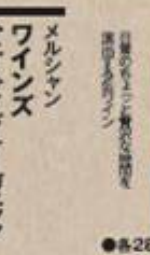 日常のちょっと贅沢な時間を
演出する缶ワイン
メルシャン
ワインズ
●各28